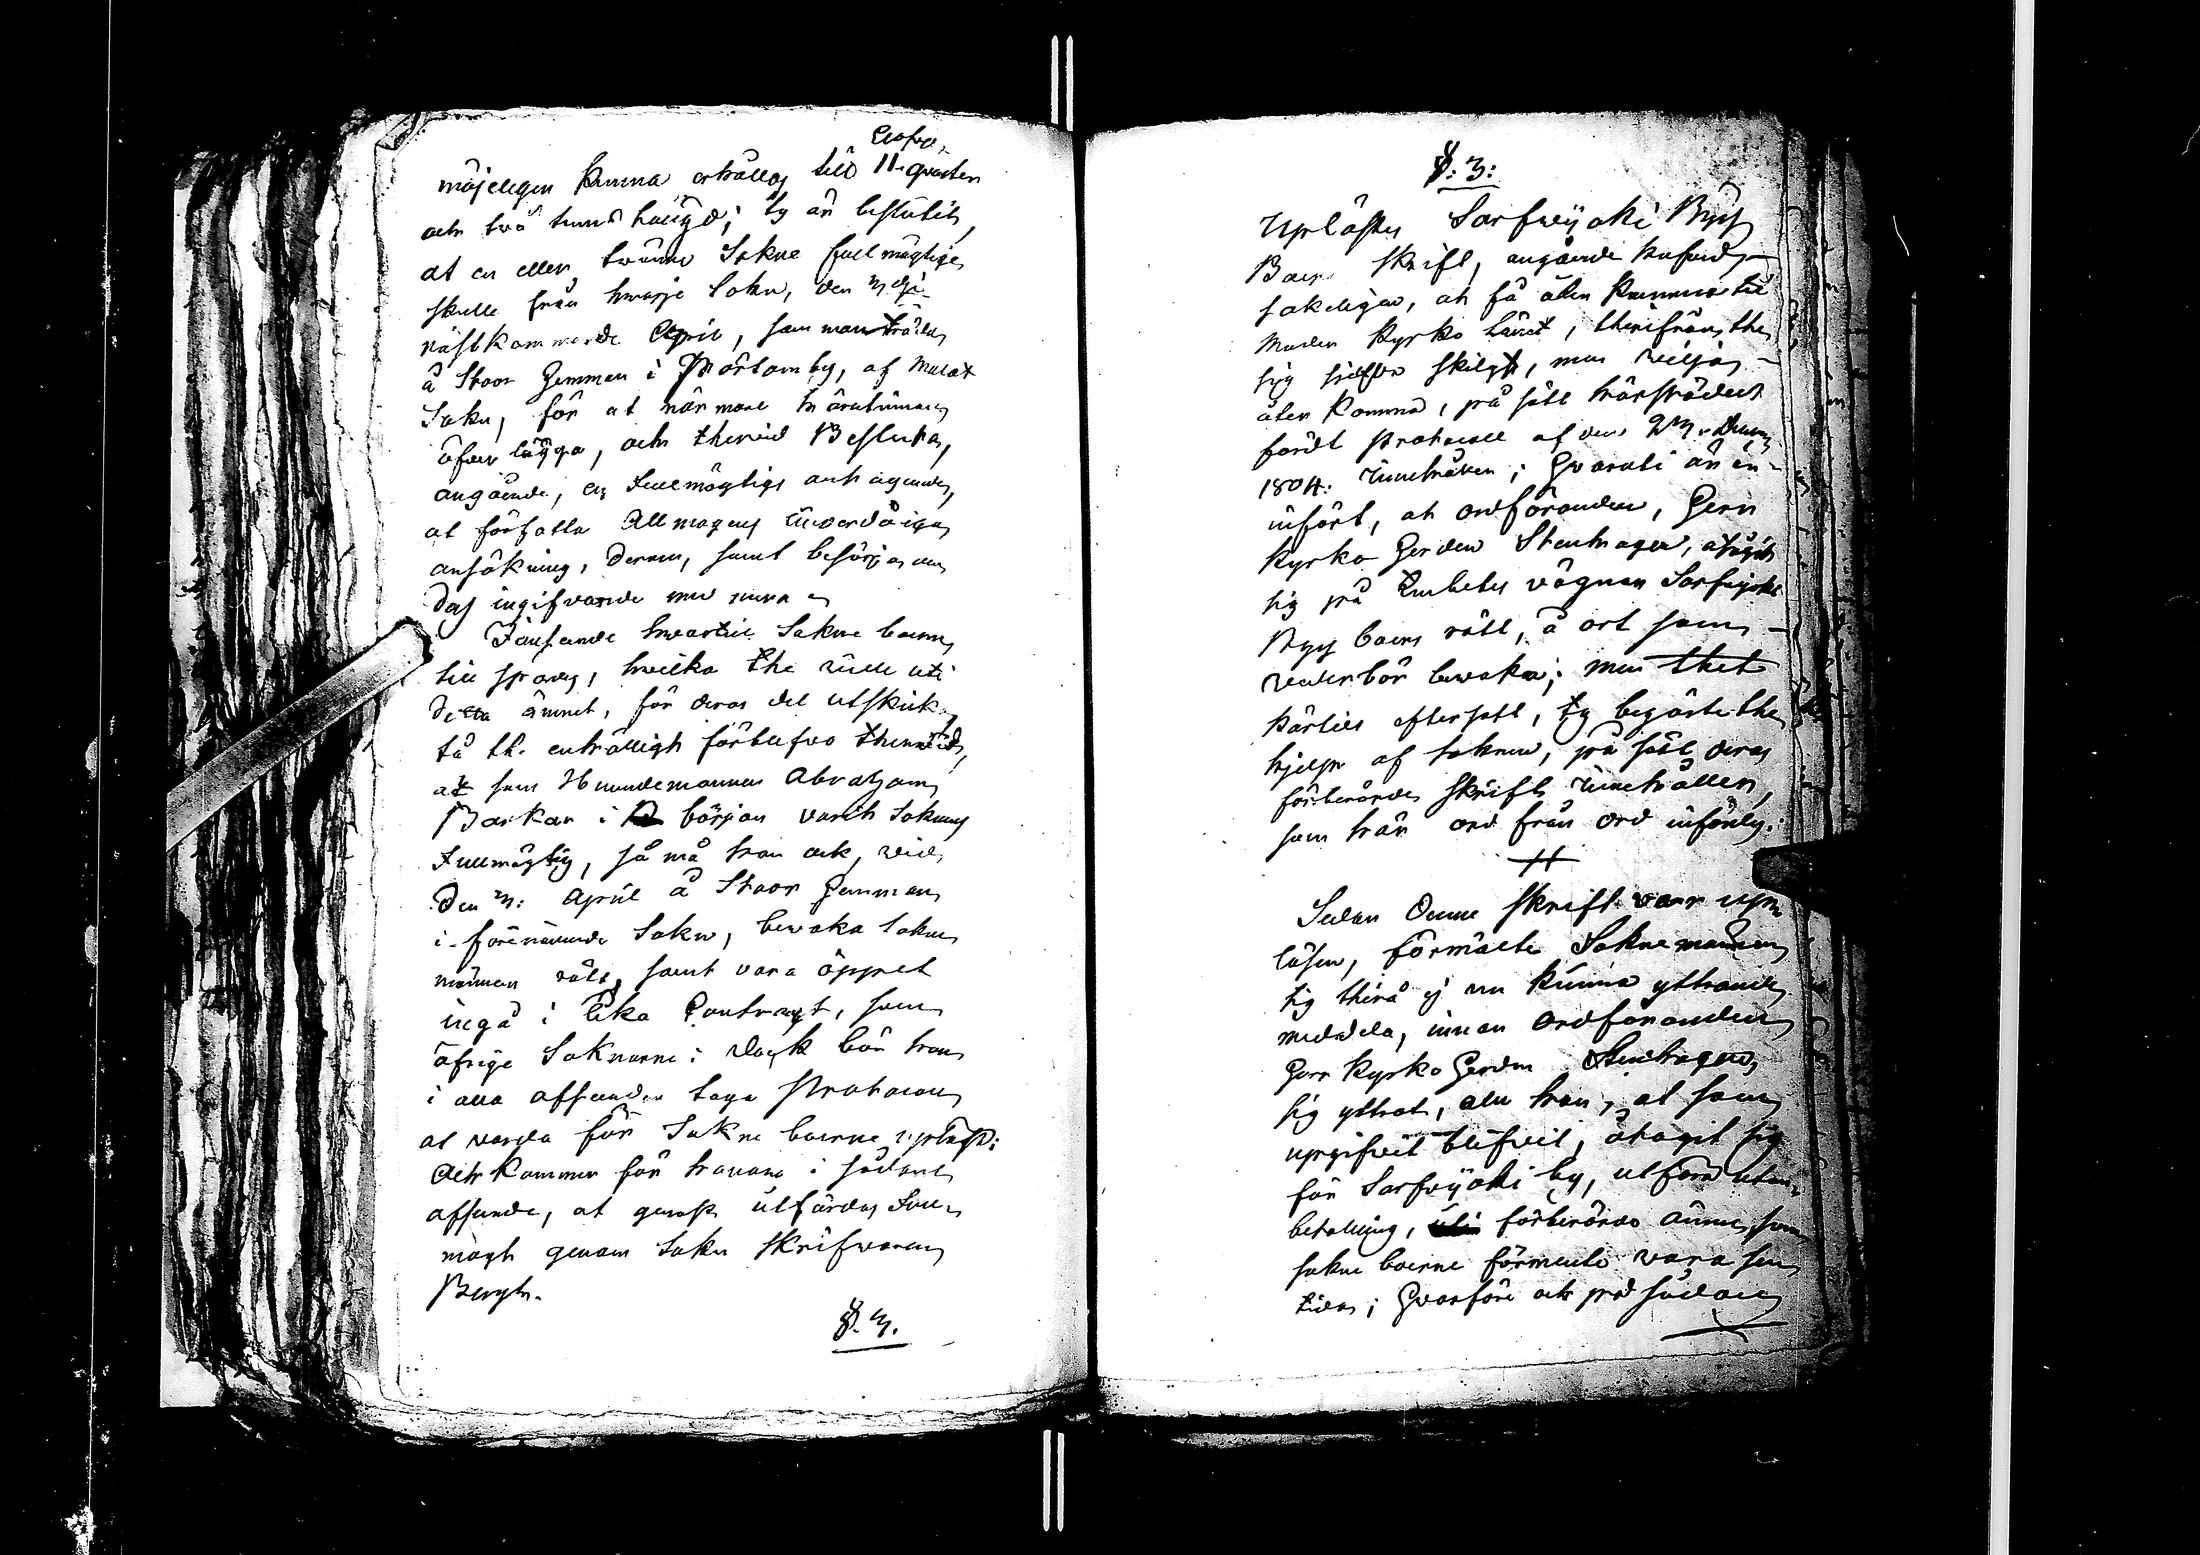 möjeligen kunna erhållas till 11. qvarter
och två tums högd; ty är beslutit,
at en eller tvänne Sokne fullmägtige
skulle från hwarje Sokn, den 3dje
nästkommande April, sammanträda
å Stoor Gemman i Mörtomby, af Mulax
Sokn, för at närmare härutinnan
öfwerlägga, och therwid Besluta,
angående, en Fullmägtigs antagande,
at författa Allmogens underdåniga
ansökning, derom, samt besörja om
dess ingifvande med mera
Tänkande hwartil Sokne boerne
till spords, hwilka the wille uti
detta ämnet, för deras del utskicka
då the enhälligt förblefwo therwid,
at som Nämndemannen Abraham
Backar i början varit Soknens
Fullmägtig, så må han ock, wid
den 3: April å Stoor Gemman
i förenämnde Sokn, bewaka Sokne
männens rätt, samt vara öppet
ingå i lika Contragt, som
öfrige Soknarne: dock bör han
i alla affseenden taga Protocoll
at varda för Sokne boerne upläst:
Och kommer för honom i sådant
affseende, at genast utfärdas Full-
magt genom Sokne Skrifwaren
Bergh.
§. 3.
§: 3:
Uplästes Sarfwijoki Byys
Boers Skrift, angående hufwud-
sakeligen, at få åter komma til
Moder Kyrko länet, therifrån the
sig sielfwe skilgt, men wilja
åter komma, på sätt härstädes
fördt Protocoll af den
1804. innehåller; Hvaruti är in-
infört, at ordföranden, Herr
Kyrko Herden Stenhagen, åtagit
sig på Embetes vägnar Sarfwijoki
Byy boers rätt, å ort som
wederbör bewaka; men thet
härtils eftersatt, ty begärte the
hjelp af Soknen, på sätt deras
förberörde Skrift innehåller,
som här ord från ord införes:
#
Sedan denne skrift varr up-
läsen, förmälte Soknemännen
sig thera ej nu kunna yttrande
meddela, innan ordföranden
Herr Kyrko Herden Stenhagen
sig yttrat, om han, at som
upgifvit blifvit, åtagit sig
för Sarfwijoki by, utföra utan
betalning, förberörde ämne, som
sokne boerne förmente vara sen
tida; Hvarföre och på sådan